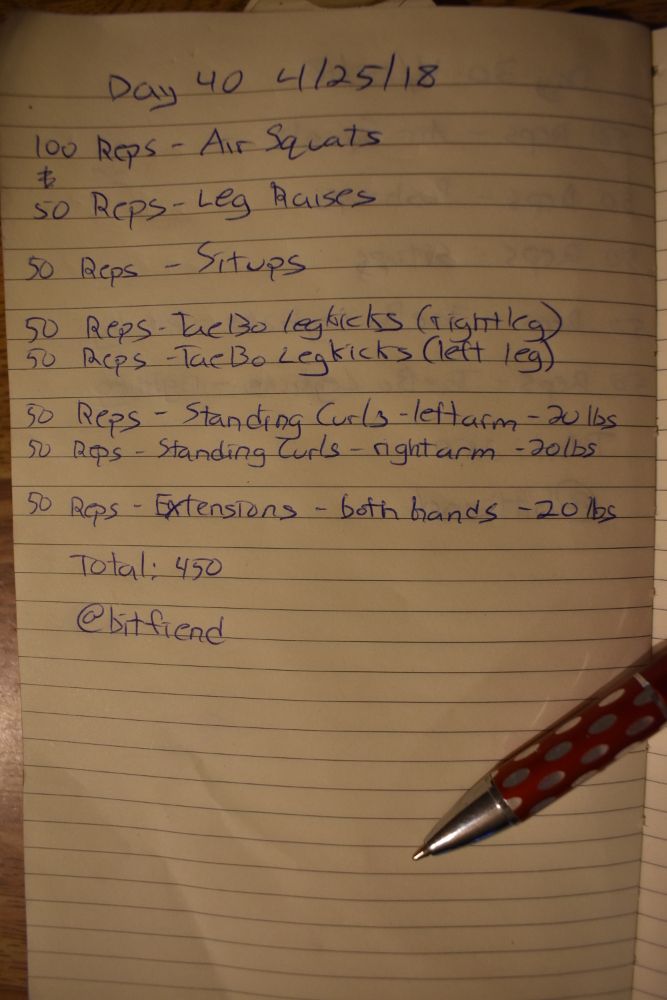 Day 40 4/25/18
100 Reps - Air Squats
50 Reps - Leg Raises
50 Reps - Situps
50 Reps - TaeBo legkicks (right leg)
50 Reps - TaeBo Legkicks (left leg)
50 Reps - Standing Curls - left arm - 20 lbs
50 Reps - Standing Curls - right arm - 20 lbs
50 Reps - Extensions - both hands - 20 lbs
Total: 450
@bitfiend